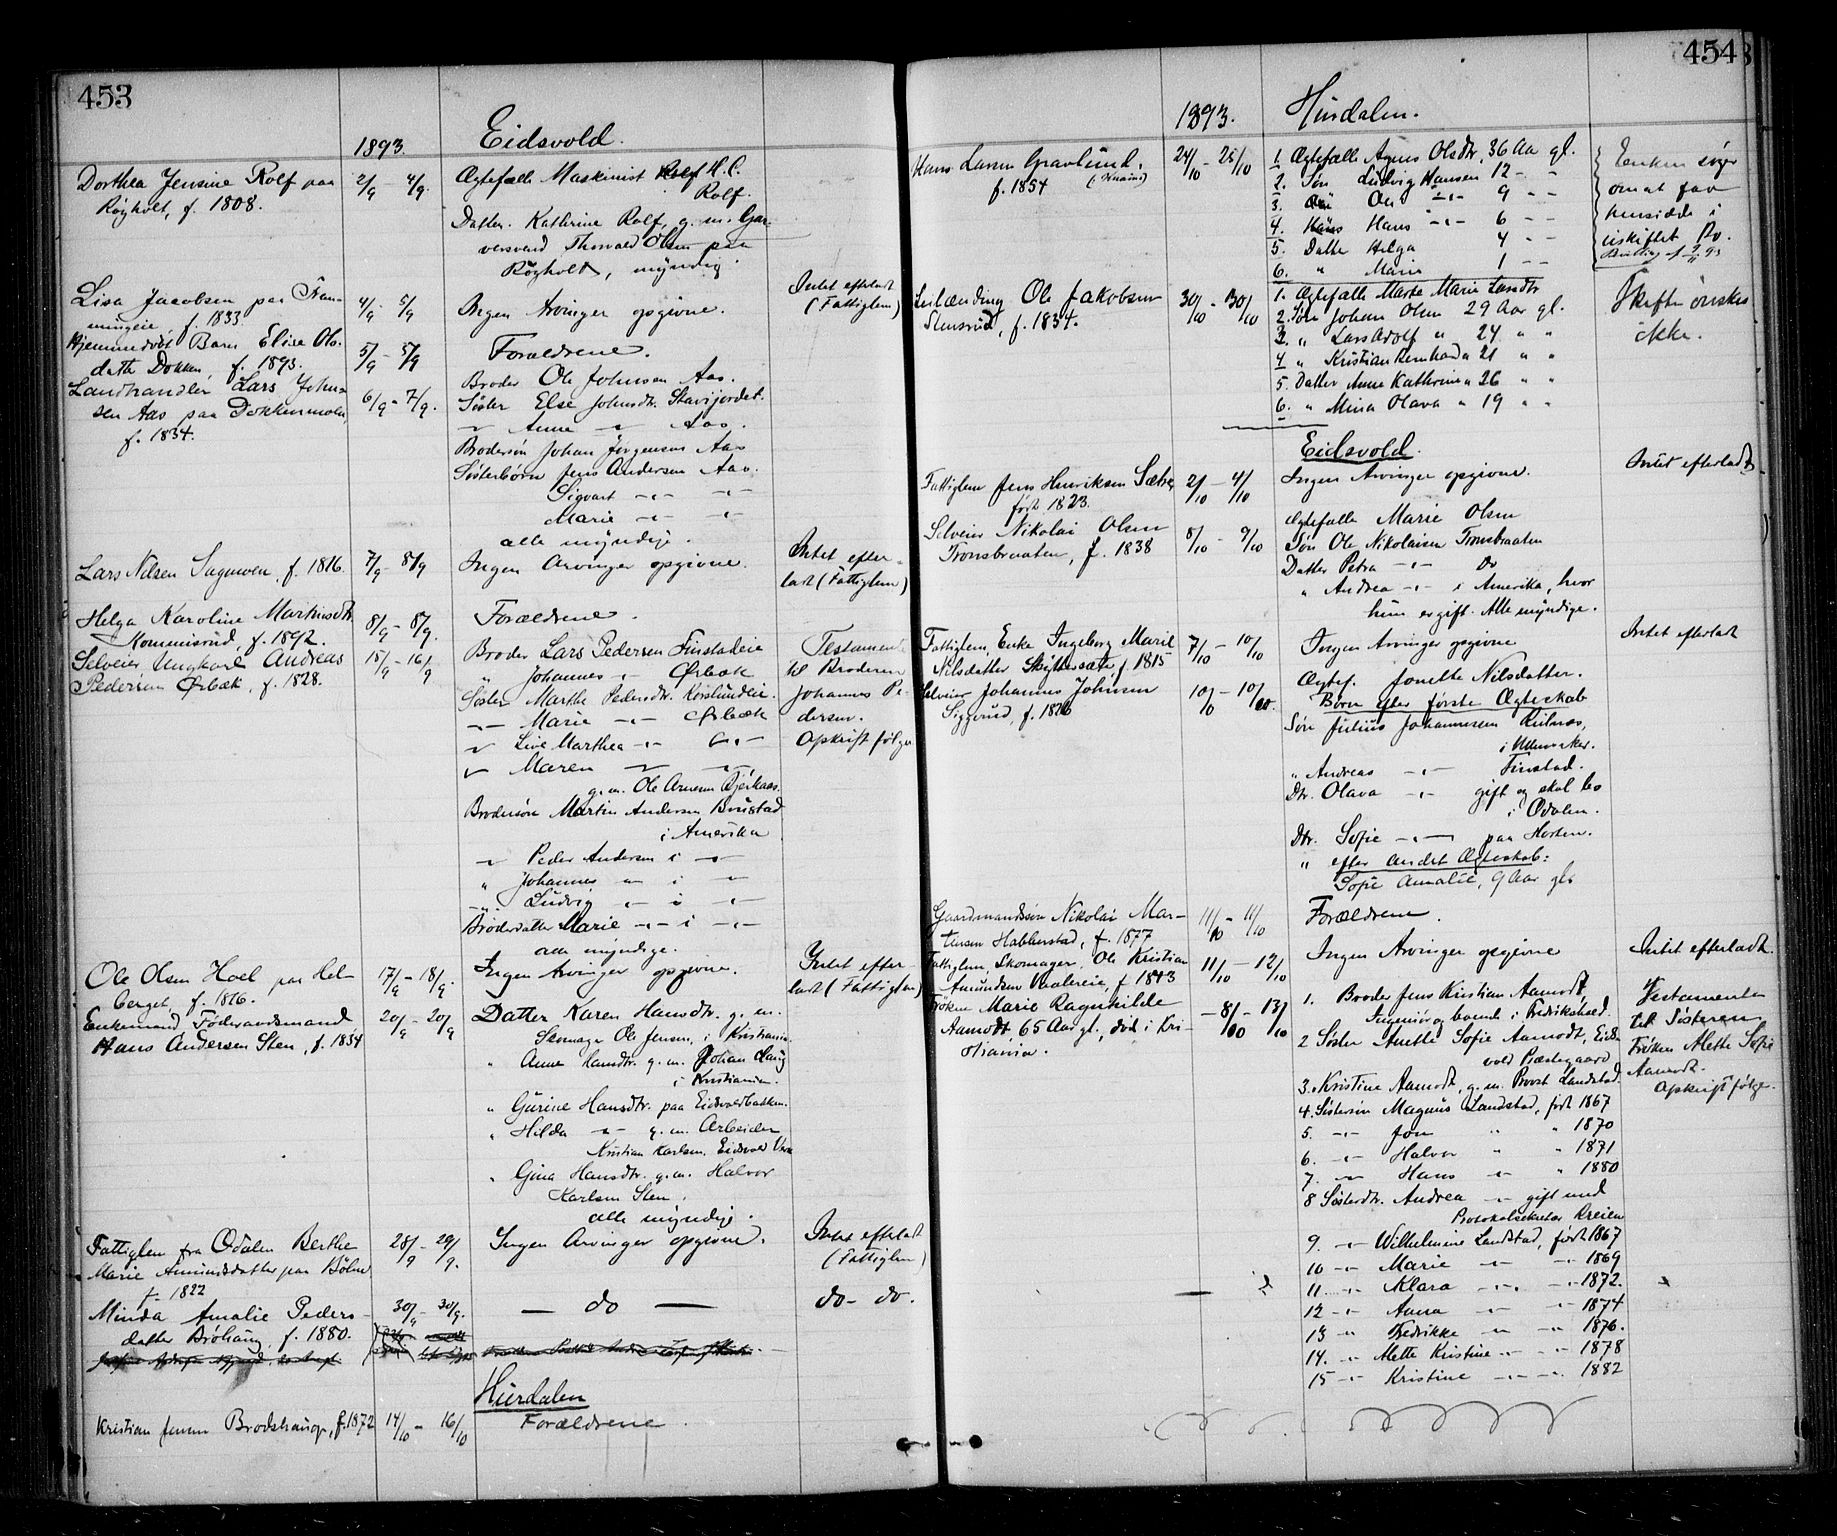 453
1893. Eidsvold.
Dorthea Jensine Rolf paa
Røjholt, f. 1808.
2/9 - 4/9.
Ægtefælle Maskinist H. C.
Rolf.
Datter Kathrine Rolf, g. m. Gar-
versvend Thorvald Olsen paa
Røjholt, myndig.
Lisa Jacobsen paa
f. 1833
4/9 - 5/9
Ingen Arvinger opgivne.
Intet efterladt
(Fattiglem)
Hjemmedøbt Barn Elise Ols-
datter Dokken, f. 1893.
5/9 - 5/9
Forældrene.
Landhandler Lars John-
sen Aas paa Dokkenmoen,
f. 1834.
6/9 - 7/9.
Broder Ole Johnsen Aas.
Søster Else Johnsdtr.
Anne Aas.
Brodersøn Johan Jørgensen Aas
Søsterbørn Jens Andersen Aas.
Sigvart -"- -"-
Marie -"- -"-
alle myndige.
Lars Nilsen f. 1816.
7/9 - 8/9
Ingen Arvinger opgivne.
Intet efter-
ladt (Fattiglem)
Helga Karoline Martinsdtr
f. 1892.
8/9 - 8/9.
Forældrene.
Selveier Ungkarl Andreas
Pedersen Ørbæk, f. 1828.
15/9 - 16/9
Broder Lars Pedersen Finstadeie
" Johannes -"- Ørbæk
Søster Marthe Pedersdtr.
-"- Marie -"- Ørbæk
Live Marthea -"-
Maren
g. m. Ole Arnesen
Brodersøn Martin Andersen
i Amerika
Peder Andersen i -"-
" Johannes -"- i -"-
-"- Ludvig -"- i -"-
Broderdatter Marie -"- i -"-
alle myndige.
Testament
til Broderen
Johannes Pe-
dersen.
Afskrift følger
Ole Olsen Hoel paa
f. 1816.
17/9 - 18/9.
Ingen Arvinger opgivne.
Intet efter
ladt (Fattiglem)
Enkemand Føderaadsmand
Hans Andersen Sten, f. 1834
20/9 - 20/9
Datter Karen Hansdtr. g. m.
Skomager Ole Jensen, i Kristiania.
" Anne Hansdtr. g. m. Johan Haug
i Kristiania.
" Gurine Hansdtr. paa Eidsvoldbakken.
" Hilda -"- g. m. Arbeider
Kristian Karlsen, Eidsvold Værk
" Gina Hansdtr. g. m. Halvor
Karlsen Sten.
alle myndige.
Fattiglem fra Odalen Berthe
Marie Amundsdatter paa
f. 1822
28/9 - 29/9.
Ingen Arvinger opgivne.
Intet efterladt
(Fattiglem)
Minda Amalie Peders-
datter f. 1880.
30/9 - 30/9.
— do —
do - do.
Hurdalen
Kristian Jensen Brodshaug, f. 1872
14/10 - 16/10
Forældrene.
454
1893. Hurdalen.
Hans Larsen Gravlund.
f. 1854
24/10 - 25/10
1. Ægtefælle Agnes Olsdtr, 36 Aar gl.
2. Søn Ludvig Hansen 12 - -
3. Ole -"- 9 - -
4. Hans -"- 6 - -
5. Datter Helga 4 - -
6. " Marie 1 - -
Enken søger
om at faa
hensidde i
uskiftet Bo.
Leilænding Ole Jakobsen
Stensrud, f. 1834.
30/10 - 30/10
1. Ægtefælle Marte Marie Larsdtr
2. Søn Johan Olsen 29 Aar gl.
3. " Lars Adolf " 24 " "
4 " Kristian Bernhard " 21 " "
5. Datter Anne Kathrine " 26 " "
6. " Mina Olava " 19 " "
Skifte ønskes
ikke.
Eidsvold.
Fattiglem Jens Henriksen Sætre,
født 1823.
2/10 - 4/10
Ingen Arvinger opgivne.
Intet efterladt
Selveier Nikolai Olsen
Tronsbraaten, f. 1838
8/10 - 9/10
Ægtefælle Marie Olsen
Søn Ole Nikolaisen Tronsbraaten
Datter Petra -"- Do
" Andrea -"- i Amerika, hvor
hun er gift. Alle myndige.
Fattiglem, Enke Ingeborg Marie
Nilsdatter f. 1815
7/10 - 10/10
Ingen Arvinger opgivne
Intet efterladt
Selveier Johannes Johnsen
Siggerud, f. 1826
10/10 - 10/10.
Ægtef. Jonette Nilsdatter.
Børn efter første Ægteskab
Søn Julius Johannessen
i
" Andreas -"- Finstad.
Dtr. Olava -"- gift og skal bo
i Odalen.
Dtr. Sofie -"- paa Horten.
" efter andet Ægteskab:
Sofie Amalie, 9 Aar gl.
Gaardmandssøn Nikolai Mar-
tinsen Habberstad, f. 1877
11/10 - 11/10
Forældrene.
Fattiglem, Skomager Ole Kristian
Amundsen f. 1843
11/10 - 12/10
Ingen Arvinger opgivne
Intet efterladt.
Frøken Marie Ragnhilde
Aamodt, 65 Aar gl., død i Kri-
stiania.
8/10 - 13/10
1. Broder Jens Kristian Aamodt,
Ingeniør, og boende i Fredrikshald.
2 Søster Anette Sofie Aamodt, Eids-
vold Præstegaard
3. Kristine Aamodt, g. m. Provst Landstad.
4. Søstersøn Magnus Landstad, født 1867
5. -"- Jon " " 1870
6. -"- Halvor " " 1871
7. -"- Hans -"- " 1880
8 Søsterdtr. Andrea -"- gift med
Protokolsekretær Kreier
9. -"- Wilhelmine Landstad, født 1867
10 -"- Marie -"- -"- 1869
11 -"- Klara -"- -"- 1872.
12 -"- Anna -"- -"- 1874
13 -"- Fredrikke -"- -"- 1876.
14. -"- Mette Kristine -"- -"- 1878
15 -"- Kristine -"- -"- 1882
Testamente
til Søsteren
Frøken Mette Sofie
Aamodt.
Afskrift følger.